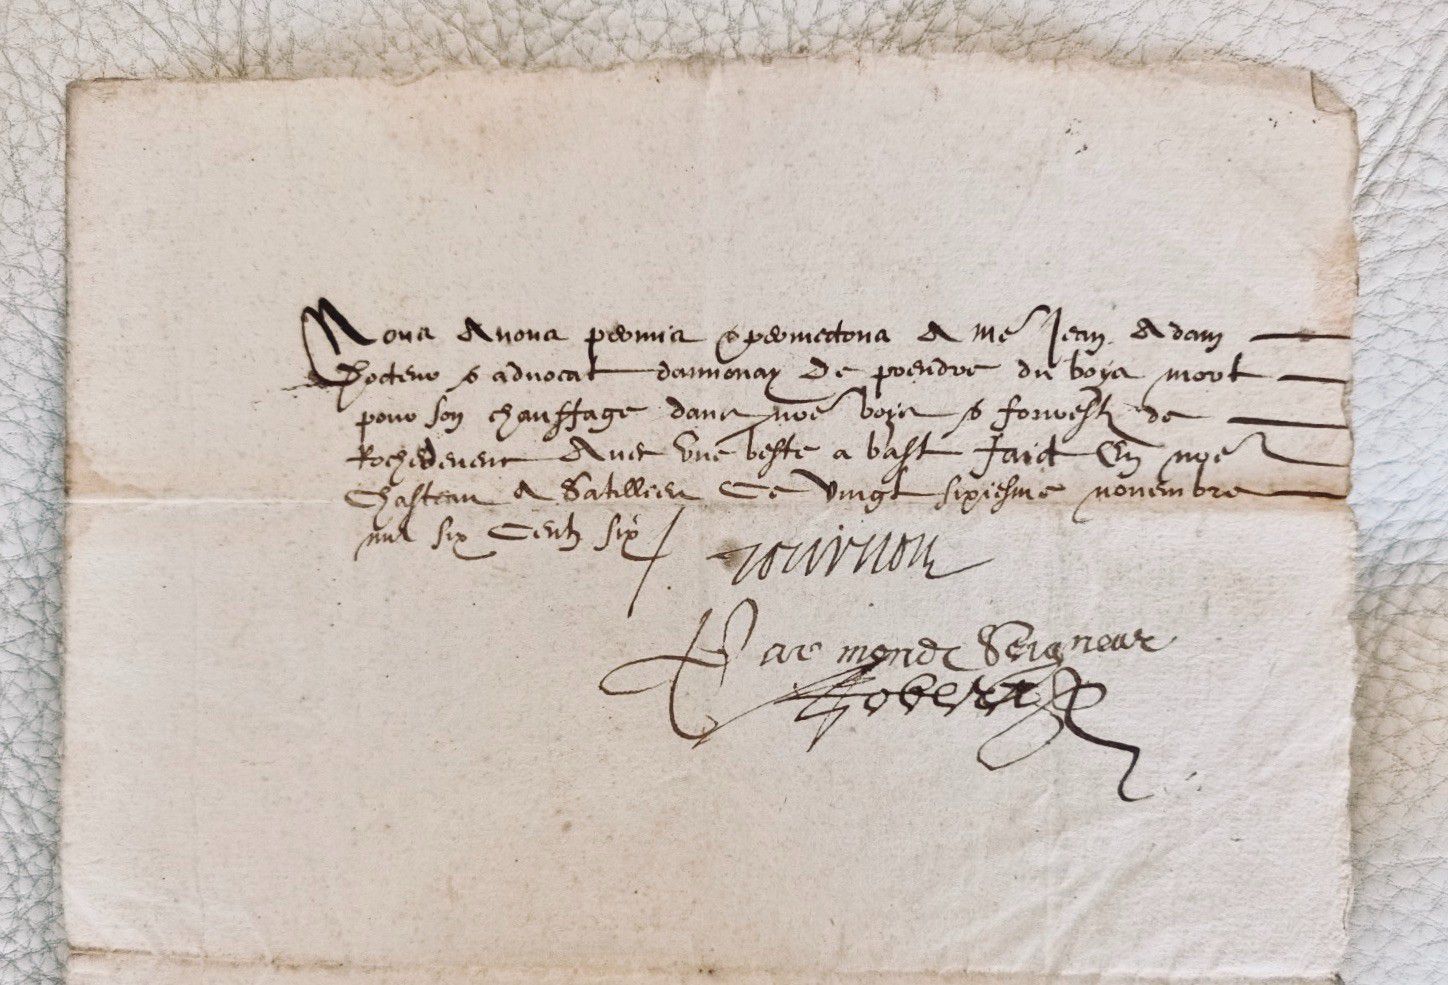 Nous Avons permis & permettons A Me Jean Adam
Docteur & advocat dannonay de prendre du boys mort
pour son chauffage dans nre boys & forrest de
Rochedeneu Avec Une beste a bast faict En nre
Chasteau A Satillieu Ce vingt sixiesme novembre
mil six Centz six
Tournon
Par mondt Seigneur
Robert